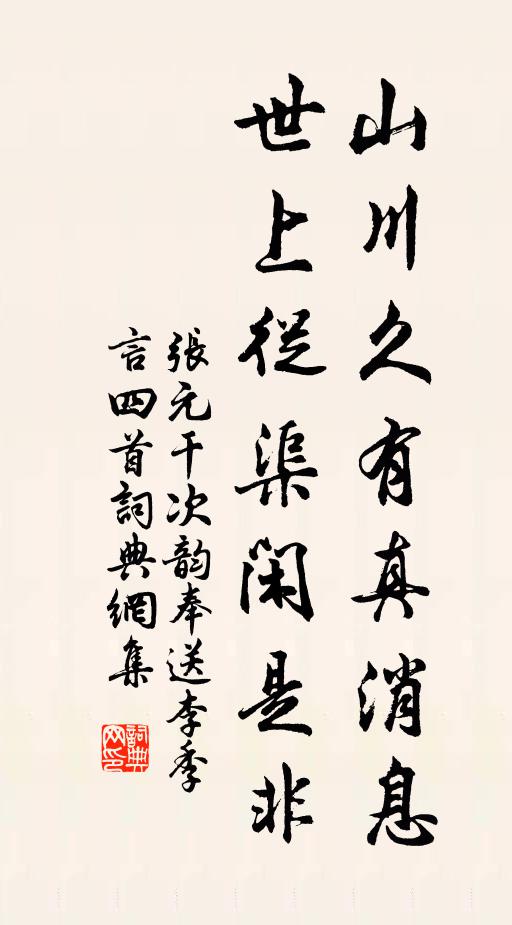 山川久有真消息
世上從渠閑是非
張元干次韵奉送李季
言四首詞典網集
詞典
网印